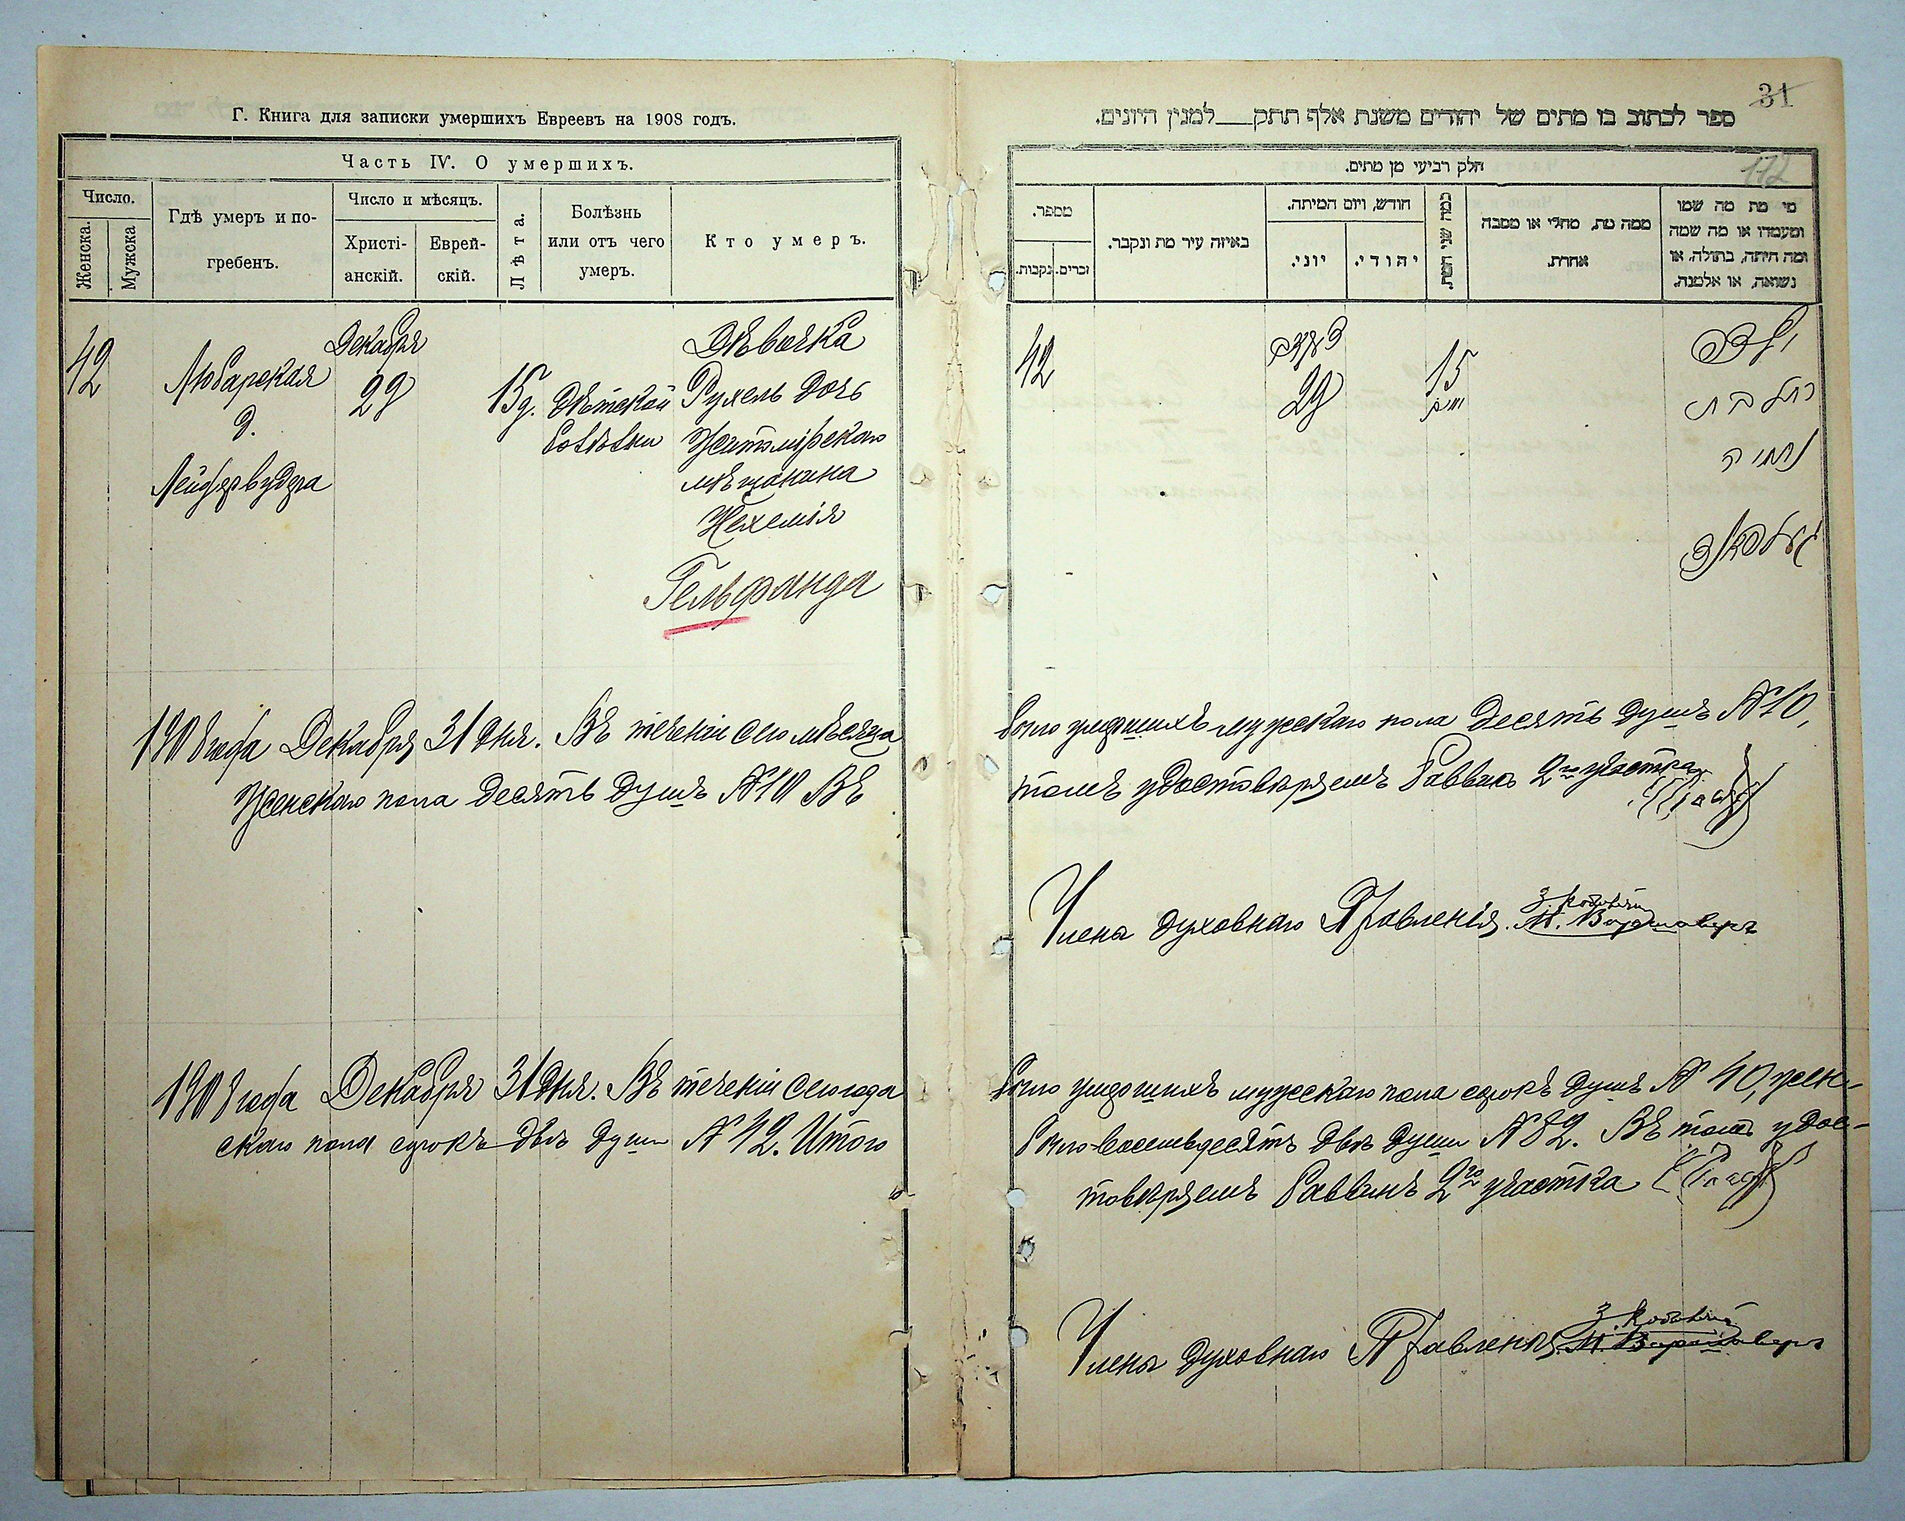 Г. Книга для записки умершихъ Евреевъ на 1908 годъ.
Часть IV. О умершихъ.
Число.
Женска.
Мужска
Гдѣ умеръ и по-
гребенъ.
Число и мѣсяцъ.
Христі-
анскій.
Еврей-
скій.
Лѣта.
Болѣзнь
или отъ чего
умеръ.
Кто умеръ.
42
Любарская
д.
Декабря
29
15 д.
Дѣтской
болѣзни
Дѣвочка
Рухель дочь
Житомірскаго
мѣщанина
Нехемія
Гельфанда
1908 года Декабря 31 дня. Въ теченіи сего мѣсяца
Женскаго пола десять душъ №10 Въ
1908 года Декабря 31 дня. Въ теченіи сего года
скаго пола сорокъ двѣ души № 42. Итого
31
172
ספר לכתוב בו מתים של יהודים משנת אלף תתק___למנין היונים.
חלק רביעי מן מתים.
מספר.
נקבות.
זכרים.
באיזה עיר מת ונקבר.
חודש, ויום המיתה.
יוני.
יהודי.
כמה שני המת.
ממה מת, מחלי או מסבה
אחרת.
מי מת מה שמו
ומעמדו או מה שמה
ומה היתה, בתולה. או
נשואה, או אלמנה.
42
29
15
ילדה
רחל בת
נחמיה
געלפאנד
было умершихъ мужскаго пола десять душъ № 10,
томъ удостовѣряемъ Раввинъ 2го участка
Члены духовнаго Правленія.
было умершихъ мужскаго пола сорокъ душъ № 40, жен-
было восемьдесятъ двѣ души № 82. Въ томъ удос-
товѣряемъ Раввинъ 2го участка
Члены духовнаго Правленія.